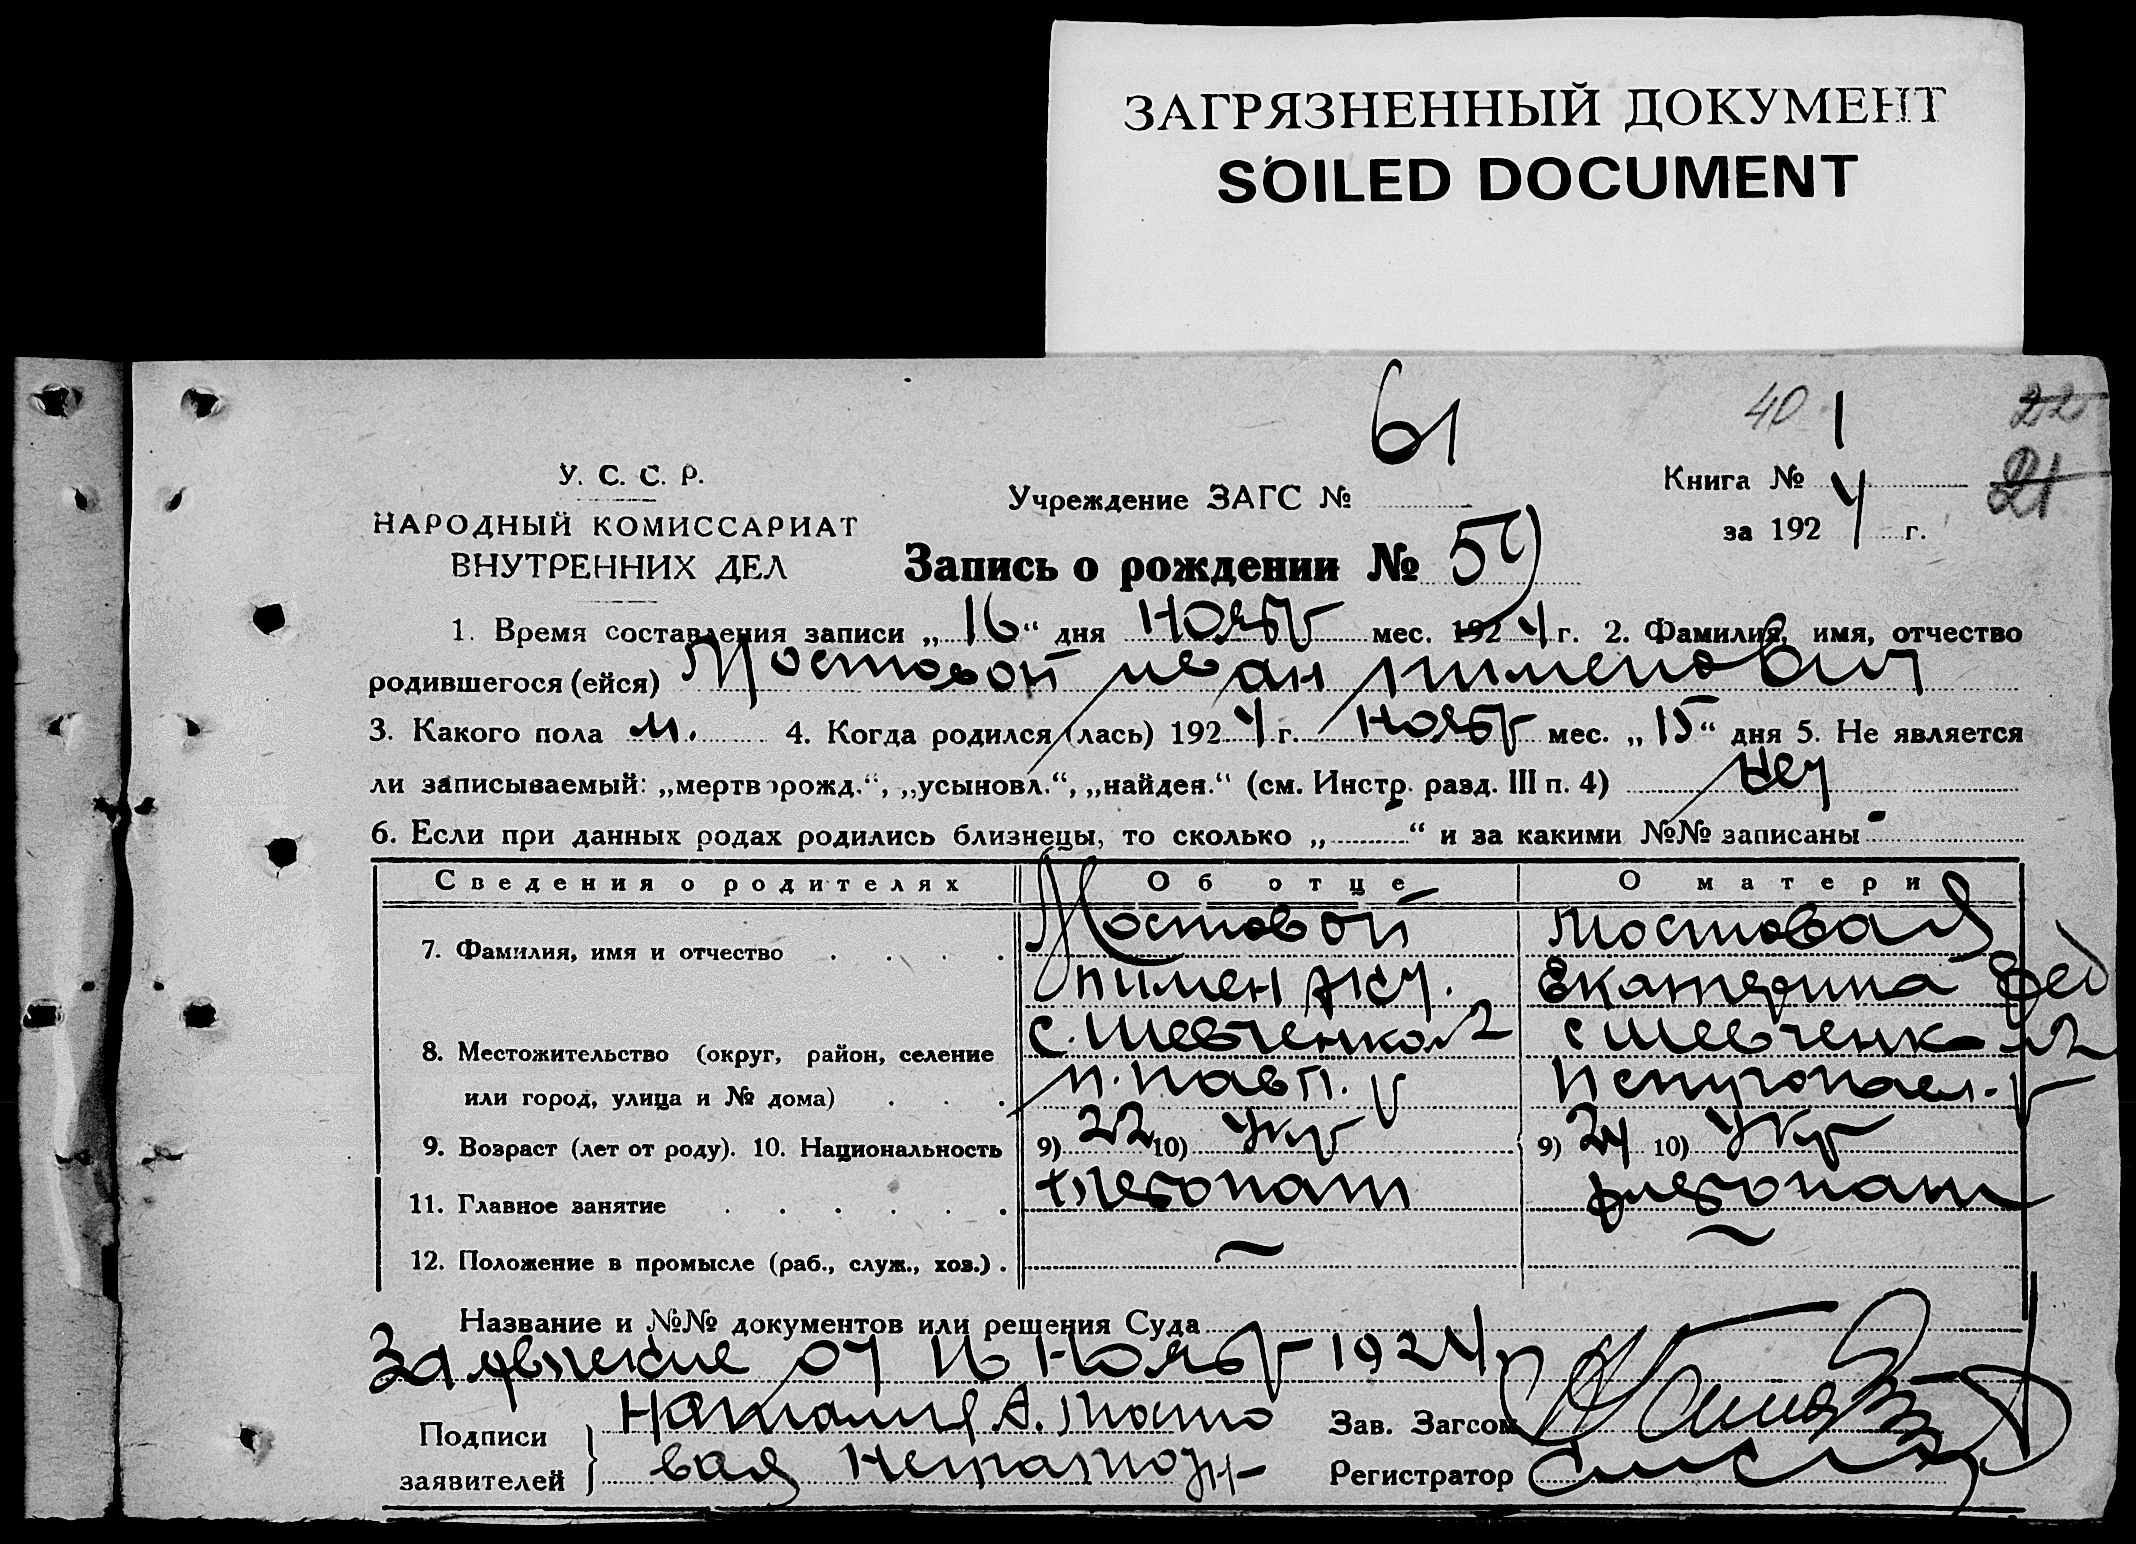 ЗАГРЯЗНЕННЫЙ ДОКУМЕНТ
SOILED DOCUMENT
61
40 1
22
У. С. С. Р.
НАРОДНЫЙ КОМИССАРИАТ
ВНУТРЕННИХ ДЕЛ
Учреждение ЗАГС №
Книга №
21
за 192 4 г.
Запись о рождении № 59
1. Время составления записи „ 16 “ дня Нояб мес. 192 4 г. 2. Фамилия, имя, отчество
родившегося (ейся) Мостовой Иван Пименович
3. Какого пола м. 4. Когда родился (лась) 192 4 г. Нояб мес. „ 15 “ дня 5. Не является
ли записываемый: „мертворожд.“, „усыновл.“, „найден.“ (см. Инстр. разд. III п. 4) Нет
6. Если при данных родах родились близнецы, то сколько „ “ и за какими №№ записаны -
Сведения о родителях Об отце О матери
7. Фамилия, имя и отчество Мостовой Мостовая
Пимен Екатерина Фед
8. Местожительство (округ, район, селение с. Шевченко 2 с Шевченк 2
или город, улица и № дома) П. Павл. Петропавл.
9. Возраст (лет от роду). 10. Национальность 9) 22 10) Укр 9) 24 10) Укр
11. Главное занятие хлебопаш хлебопаш
12. Положение в промысле (раб., служ., хоз.) - -
Название и №№ документов или решения Суда
Заявление от 16 Нояб 1924
Подписи
заявителей
Наталия А. Мосто
вая Неграмотн
Зав. Загсом
Регистратор